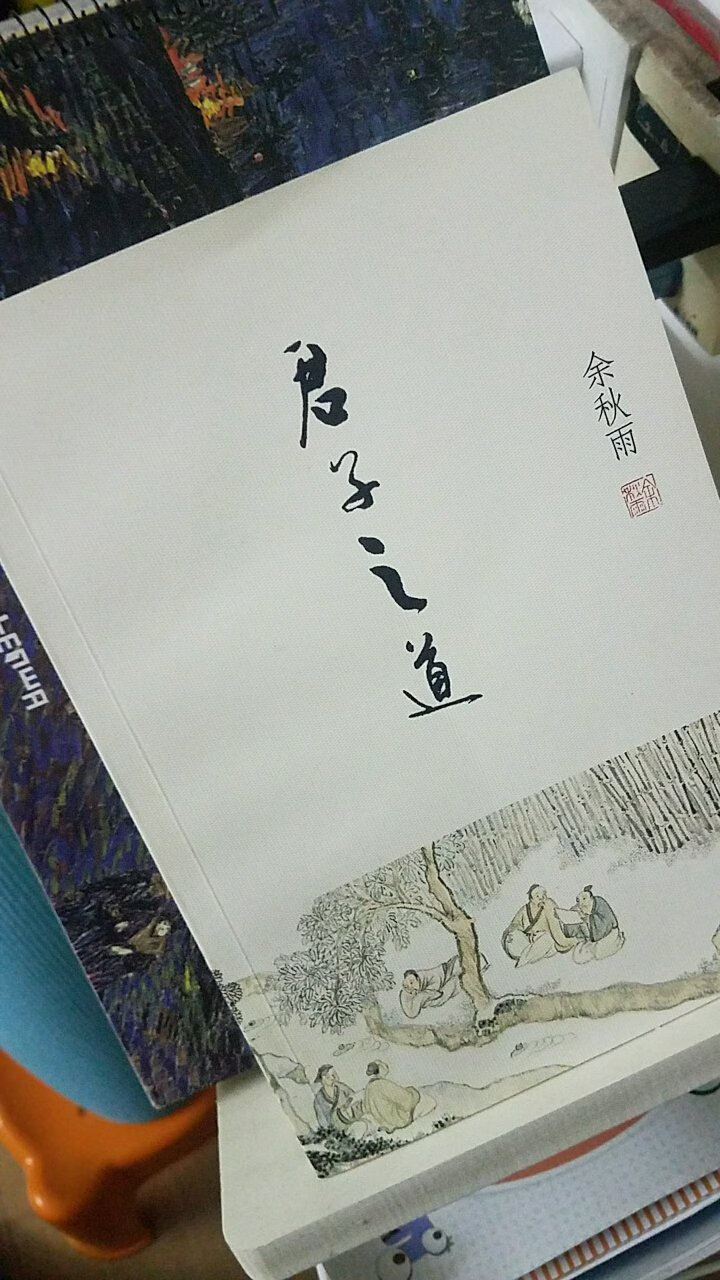 君子之道
余秋雨
余秋雨